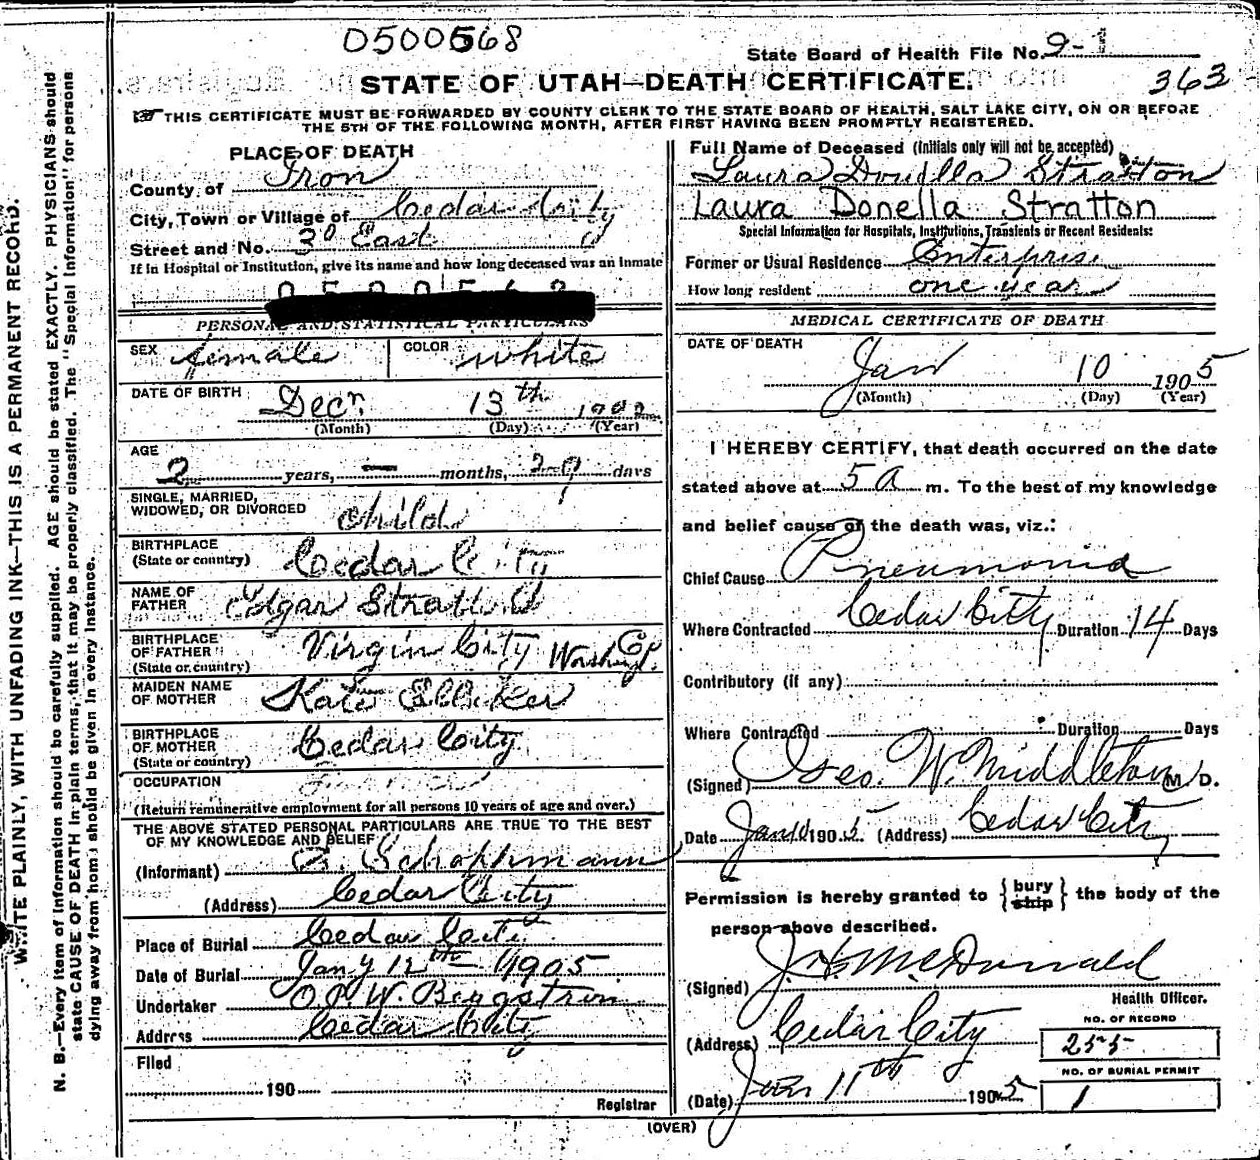 0500568
State Board of Health File No. 9-1
363
STATE OF UTAH—DEATH CERTIFICATE.
THIS CERTIFICATE MUST BE FORWARDED BY COUNTY CLERK TO THE STATE BOARD OF HEALTH, SALT LAKE CITY, ON OR BEFORE
THE 5TH OF THE FOLLOWING MONTH, AFTER FIRST HAVING BEEN PROMPTLY REGISTERED.
WRITE PLAINLY, WITH UNFADING INK—THIS IS A PERMANENT RECORD.
N. B.—Every item of information should be carefully supplied. AGE should be stated EXACTLY. PHYSICIANS should
state CAUSE OF DEATH in plain terms, that it may be properly classified. The "Special Information" for persons
dying away from home should be given in every instance.
PLACE OF DEATH
County of Iron
City, Town or Village of Cedar City
Street and No. 3d East
If in Hospital or Institution, give its name and how long deceased was an inmate
PERSONAL AND STATISTICAL PARTICULARS
SEX female COLOR white
DATE OF BIRTH Decr. 13th 1902
(Month) (Day) (Year)
AGE
2 years, — months, 29 days
SINGLE, MARRIED,
WIDOWED, OR DIVORCED child
BIRTHPLACE
(State or country) Cedar City
NAME OF
FATHER Edgar Stratton
BIRTHPLACE
OF FATHER
(State or country) Virgin City Washingt. Co
MAIDEN NAME
OF MOTHER Kate
BIRTHPLACE
OF MOTHER
(State or country) Cedar City
OCCUPATION
(Return remunerative employment for all persons 10 years of age and over.)
THE ABOVE STATED PERSONAL PARTICULARS ARE TRUE TO THE BEST
OF MY KNOWLEDGE AND BELIEF
(Informant) Schoppmann
(Address) Cedar City
Place of Burial Cedar City
Date of Burial Jany 12th — 1905
Undertaker W. Bergstrom
Address Cedar City
Filed
190
Registrar
Full Name of Deceased (Initials only will not be accepted)
Laura Donella Stratton
Laura Donella Stratton
Special Information for Hospitals, Institutions, Transients or Recent Residents:
Former or Usual Residence Enterprise
How long resident one year
MEDICAL CERTIFICATE OF DEATH
DATE OF DEATH
Jan 10 1905
(Month) (Day) (Year)
I HEREBY CERTIFY, that death occurred on the date
stated above at 5 a m. To the best of my knowledge
and belief cause of the death was, viz.:
Chief Cause Pneumonia
Where Contracted Cedar City Duration 14 Days
Contributory (if any)
Where Contracted Duration Days
(Signed) Geo. W. Middleton M. D.
Date Jan 10 1905 (Address) Cedar City
Permission is hereby granted to { bury ship } the body of the
person above described.
(Signed) J. H. McDonald
Health Officer.
(Address) Cedar City
NO. OF RECORD
255
NO. OF BURIAL PERMIT
1
(Date) Jan 11th 1905
(OVER)